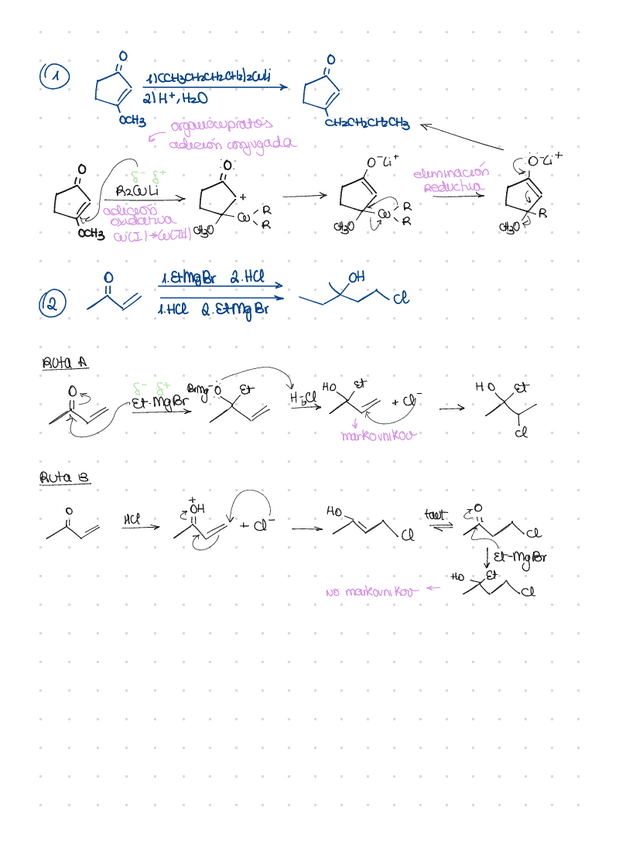 1
O
1)(CH3CH2CH2CH2)2CuLi
2) H+, H2O
OCH3
O
CH2CH2CH2CH3
organocupratos
adición conjugada
O
OCH3
δ- δ+
R2CuLi
adición
oxidativa
Cu(I)→Cu(III)
O
+
CH3O
Cu
R
R
O-Li+
CH3O
Cu
R
R
eliminación
reductiva
O-Li+
CH3O
R
2
O
1. EtMgBr 2. HCl
1. HCl 2. EtMgBr
OH
Cl
Ruta A
O
δ- δ+
Et-MgBr
BrMg-O
Et
H-Cl
HO
Et
+ Cl-
markovnikov
HO
Et
Cl
Ruta B
O
HCl
+
OH
+ Cl-
HO
Cl
taut.
O
Cl
Et-MgBr
HO
Et
Cl
no markovnikov ←